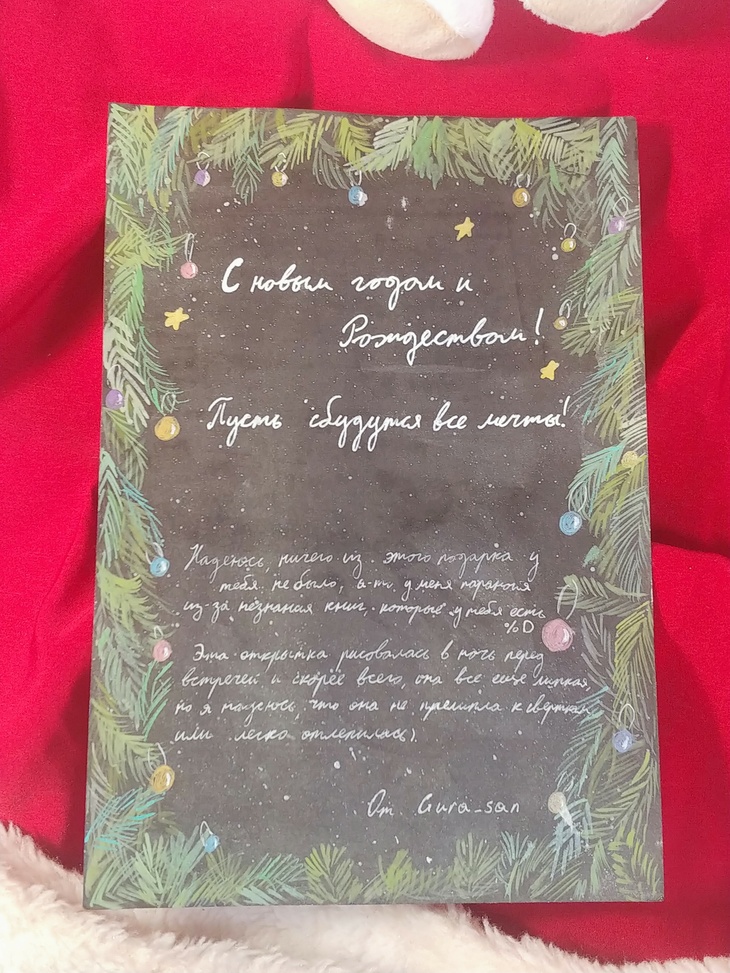 С новым годом и
Рождеством!
Пусть сбудутся все мечты!
Надеюсь, ничего из этого подарка у
тебя не было, а-то у меня паранойя
из-за незнания книг, которые у тебя есть
%D
Эта открытка рисовалась в ночь перед
встречей и скорее всего, она все еще липкая,
но я надеюсь, что она не прилипла к сверткам
или легко отлепилась)
От Gura_san